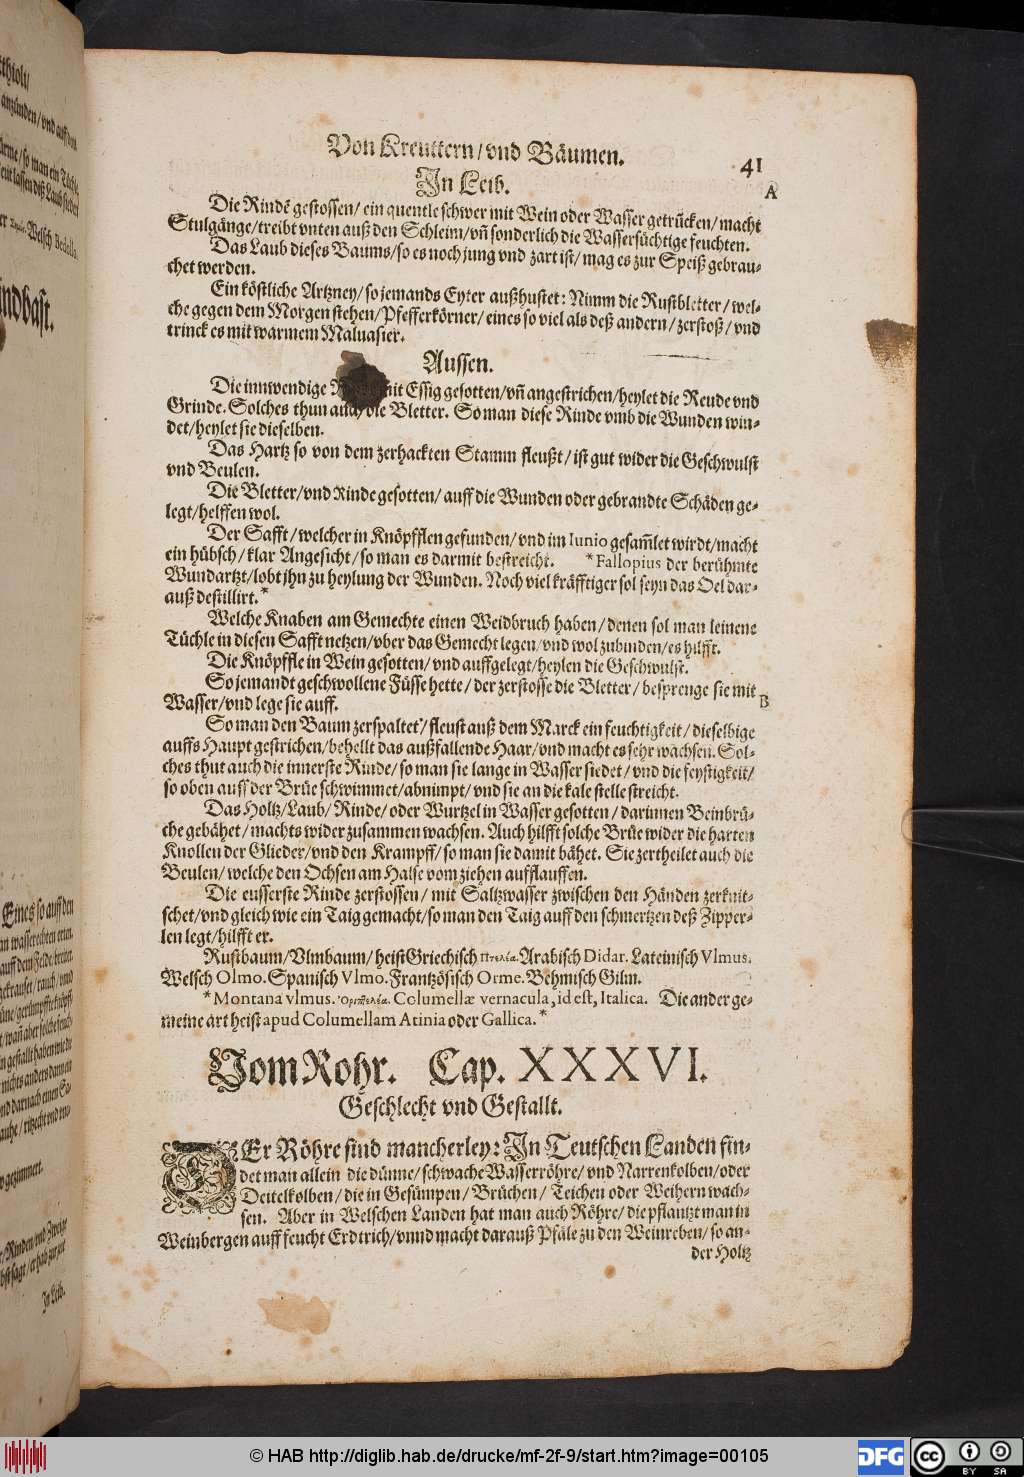 Von Kreuttern/ vnd Bäumen.
41
In Leib.
A
Die Rindẽ gestossen/ ein quentle schwer mit Wein oder Wasser getrũcken/ macht
Stulgänge/ treibt vnten auß den Schleim/ vñ sonderlich die Wassersüchtige feuchten.
Das Laub dieses Baums/ so es noch jung vnd zart ist/ mag es zur Speiß gebrau-
chet werden.
Ein köstliche Artzney/ so jemands Eyter außhustet: Nimm die Rustbletter/ wel-
che gegen dem Morgen stehen/ Pfefferkörner/ eines so viel als deß andern/ zerstoß/ vnd
trinck es mit warmem Maluasier.
Aussen.
Die innwendige mit Essig gesotten/ vñ angestrichen/ heylet die Reude vnd
Grinde. Solches thun auch die Bletter. So man diese Rinde vmb die Wunden win-
det/ heylet sie dieselben.
Das Hartz so von dem zerhackten Stamm fleußt/ ist gut wider die Geschwulst
vnd Beulen.
Die Bletter/ vnd Rinde gesotten/ auff die Wunden oder gebrandte Schäden ge-
legt/ helffen wol.
Der Safft/ welcher in Knöpfflen gefunden/ vnd im Iunio gesam̃let wirdt/ macht
ein hübsch/ klar Angesicht/ so man es darmit bestreicht. * Fallopius der berühmte
Wundartzt/ lobt jhn zu heylung der Wunden. Noch viel kräfftiger sol seyn das Oel dar-
auß destillirt. *
Welche Knaben am Gemechte einen Weidbruch haben/ denen sol man leinene
Tüchle in diesen Safft netzen/ vber das Gemecht legen/ vnd wol zubinden/ es hilfft.
Die Knöpffle in Wein gesotten/ vnd auffgelegt/ heylen die Geschwulst.
So jemandt geschwollene Füsse hette/ der zerstosse die Bletter/ besprenge sie mit
B
Wasser/ vnd lege sie auff.
So man den Baum zerspaltet/ fleust auß dem Marck ein feuchtigkeit/ dieselbige
auffs Haupt gestrichen/ behellt das außfallende Haar/ vnd macht es sehr wachsen. Sol-
ches thut auch die innerste Rinde/ so man sie lange in Wasser siedet/ vnd die feystigkeit/
so oben auff der Brüe schwimmet/ abnimpt/ vnd sie an die kale stelle streicht.
Das Holtz/ Laub/ Rinde/ oder Wurtzel in Wasser gesotten/ darinnen Beinbrü-
che gebähet/ machts wider zusammen wachsen. Auch hilfft solche Brüe wider die harten
Knollen der Glieder/ vnd den Krampff/ so man sie damit bähet. Sie zertheilet auch die
Beulen/ welche den Ochsen am Halse vom ziehen aufflauffen.
Die eusserste Rinde zerstossen/ mit Saltzwasser zwischen den Händen zerknit-
schet/ vnd gleich wie ein Taig gemacht/ so man den Taig auff den schmertzen deß Zipper-
len legt/ hilfft er.
Rustbaum/ Vlmbaum/ heist Griechisch Πτελέα. Arabisch Didar. Lateinisch Vlmus.
Welsch Olmo. Spanisch Vlmo. Frantzösisch Orme. Behmisch Gilm.
* Montana vlmus. ὀρειπτελέα. Columellæ vernacula, id est, Italica. Die ander ge-
meine art heist apud Columellam Atinia oder Gallica. *
Vom Rohr. Cap. XXXVI.
Geschlecht vnd Gestallt.
DEr Röhre sind mancherley: In Teutschen Landen fin-
det man allein die dünne/ schwache Wasserröhre/ vnd Narrenkolben/ oder
Deitelkolben/ die in Gesümpen/ Brüchen/ Teichen oder Weihern wach-
sen. Aber in Welschen Landen hat man auch Röhre/ die pflantzt man in
Weinbergen auff feucht Erdtrich/ vnnd macht darauß Pfäle zu den Weinreben/ so an-
der Holtz
© HAB http://diglib.hab.de/drucke/mf-2f-9/start.htm?image=00105
DFG
cc
BY SA